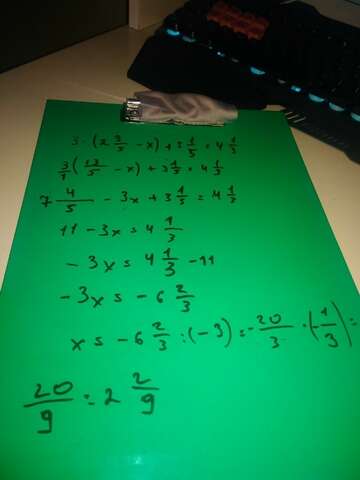 3 · (2 3/5 - x) + 3 1/5 = 4 1/3
3/1 (13/5 - x) + 3 1/5 = 4 1/3
7 4/5 - 3x + 3 1/5 = 4 1/3
11 - 3x = 4 1/3
- 3x = 4 1/3 - 11
- 3x = - 6 2/3
x = - 6 2/3 : (- 3) = - 20/3 · (- 1/3) =
20/9 = 2 2/9